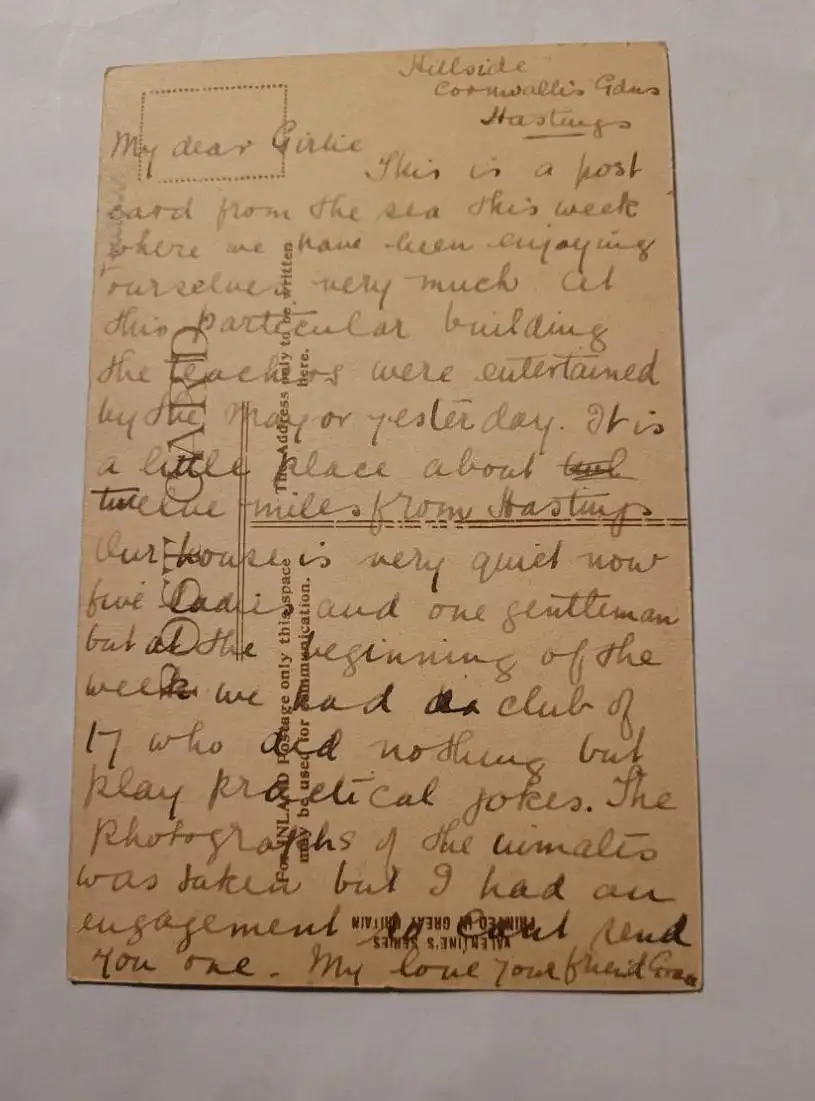 Hillside
Cornwallis Gdns
Hastings
My dear Girlie
This is a post
card from the sea this week
where we have been enjoying
ourselves very much. At
this particular building
the teachers were entertained
by the Mayor yesterday. It is
a little place about
twelve miles from Hastings
Our house is very quiet now
five ladies and one gentleman
but at the beginning of the
week we had a club of
17 who did nothing but
play practical jokes. The
photographs of the inmates
was taken but I had an
engagement so cant send
you one. My love your friend
POST CARD
The Address only to be written
here.
For INLAND Postage only this space
may be used for communication.
VALENTINE'S SERIES
PRINTED IN GREAT BRITAIN